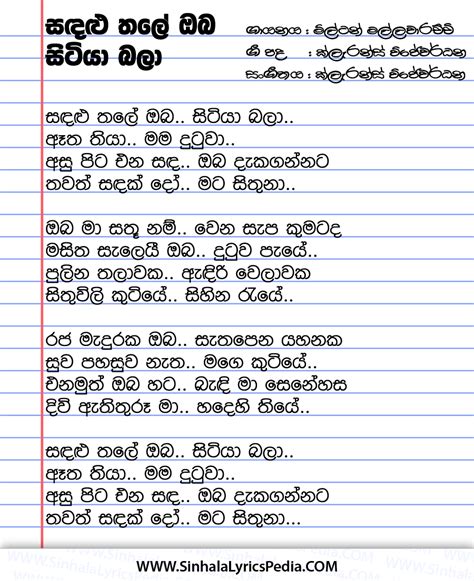 සඳළු තලේ ඔබ
සිටියා බලා
ගායනය : මිල්ටන් මල්ලවාරච්චි
ගී පද : ක්ලැරන්ස් විජේවර්ධන
සංගීතය : ක්ලැරන්ස් විජේවර්ධන
සඳළු තලේ ඔබ.. සිටියා බලා..
ඈත තියා.. මම දුටුවා..
අසු පිට එන සඳ.. ඔබ දැකගන්නට
තවත් සඳක් දෝ.. මට සිතුනා..
ඔබ මා සතූ නම්.. වෙන සැප කුමටද
මසිත සැලෙයී ඔබ.. දුටුව පැයේ..
පුලින තලාවක.. ඇඳිරි වෙලාවක
සිතුවිලි කුටියේ.. සිහින රැයේ..
රජ මැදුරක ඔබ.. සැතපෙන යහනක
සුව පහසුව නැත.. මගෙ කුටියේ..
එනමුත් ඔබ හට.. බැඳි මා සෙනේහස
දිවි ඇතිතුරු මා.. හදෙහි තියේ..
සඳළු තලේ ඔබ.. සිටියා බලා..
ඈත තියා.. මම දුටුවා..
අසු පිට එන සඳ.. ඔබ දැකගන්නට
තවත් සඳක් දෝ.. මට සිතුනා...
www.SinhalaLyricsPedia.COM